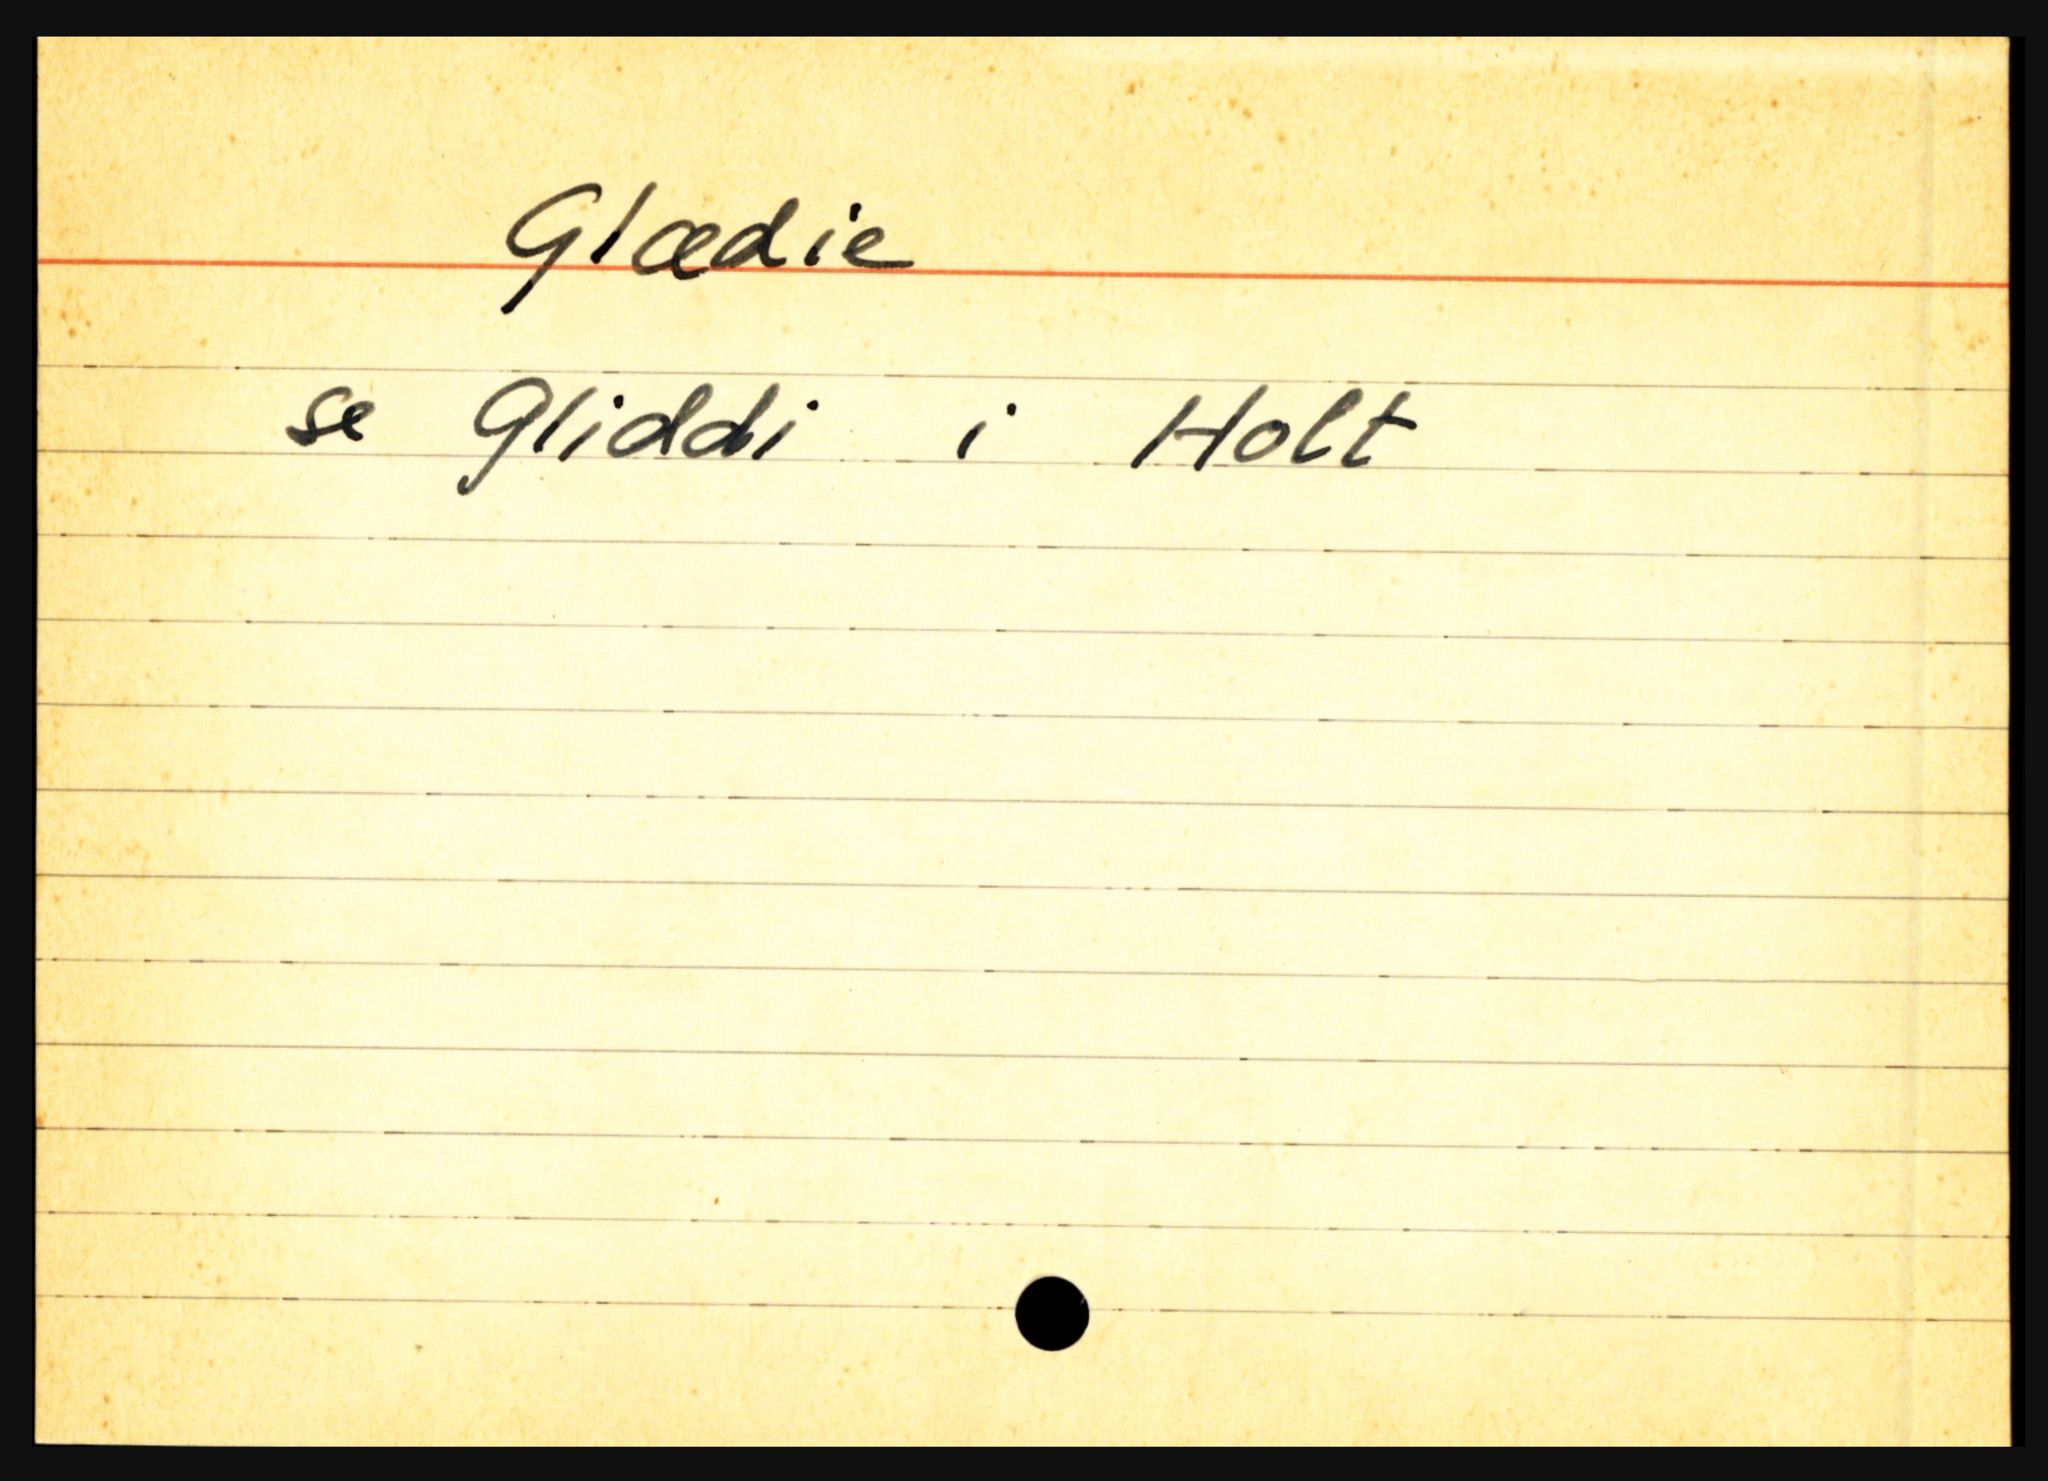 Glædie
se Gliddi i Holt